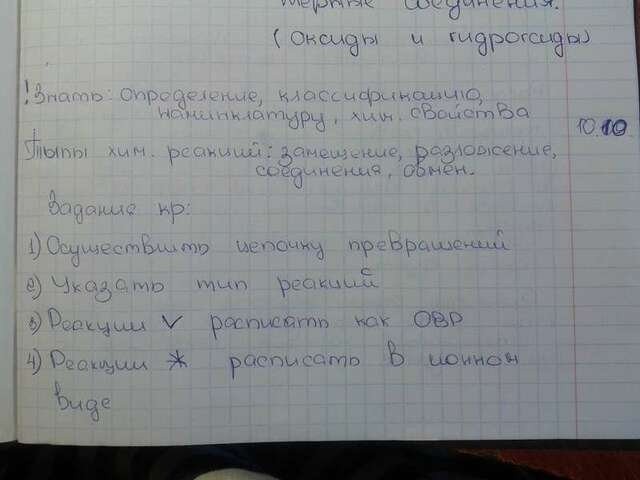 соединения.
(оксиды и гидроксиды)
!Знать: определение, классификацию,
наминклатуру, хим. свойства
10.10
Типы хим. реакций: замещение, разложение,
соединения, обмен.
Задание кр:
1) Осуществить цепочку превращений
2) Указать тип реакций с
3) Реакции V расписать как ОВР
4) Реакции * расписать в ионном
виде